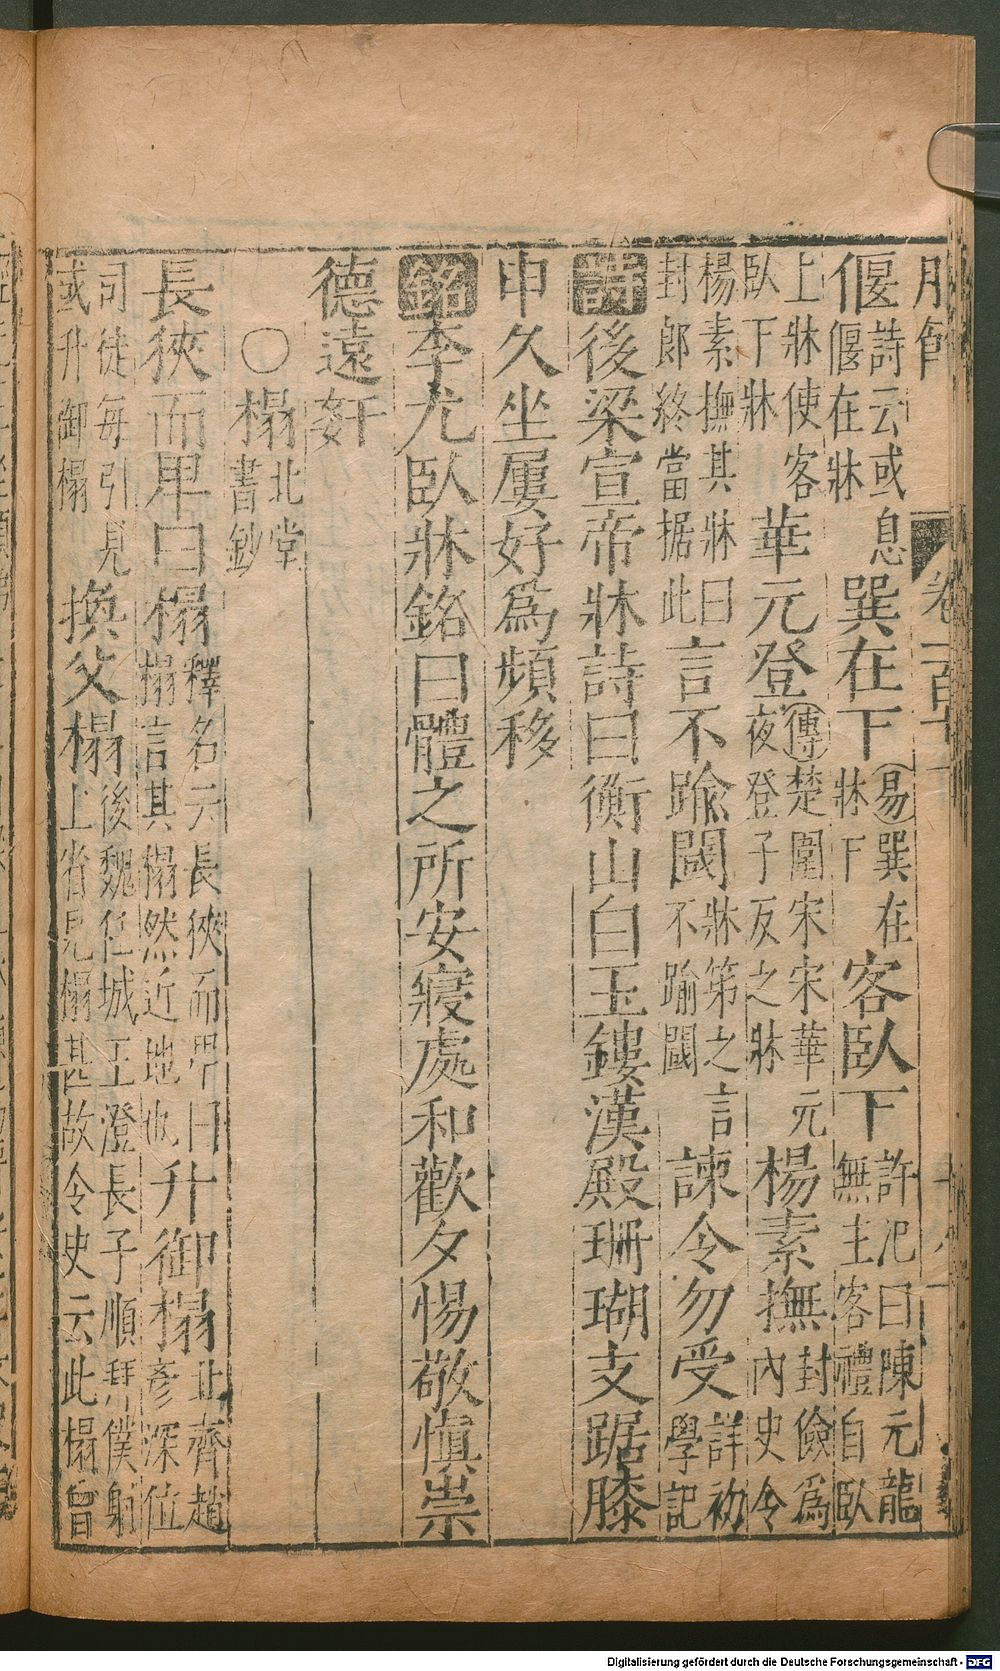 偃詩云或息偃在牀巽在下易巽在牀下客臥下許汜曰陳元龍無主客禮自臥
上牀使客臥下牀華元登傳楚圍宋宋華元夜登子反之牀楊素撫封儉爲內史令
楊素撫其牀曰封郎終當据此言不踰閾牀第之言不踰閾諫令勿受詳初學記
詩後梁宣帝牀詩曰衡山白玉鏤漢殿珊瑚支踞膝
申久坐屢好爲頻移
銘李尤臥牀銘曰體之所安寢處和歡夕惕敬慎崇
德遠奸
〇榻北堂書鈔
長狹而卑曰榻釋名云長狹而卑曰榻言其榻然近地也升御榻北齊趙彥深位
司徒每引見或升御榻換父榻後魏任城王澄長子順拜僕射上省見榻甚故令史云此榻曾
卷一百
Digitalisierung gefördert durch die Deutsche Forschungsgemeinschaft - DFG